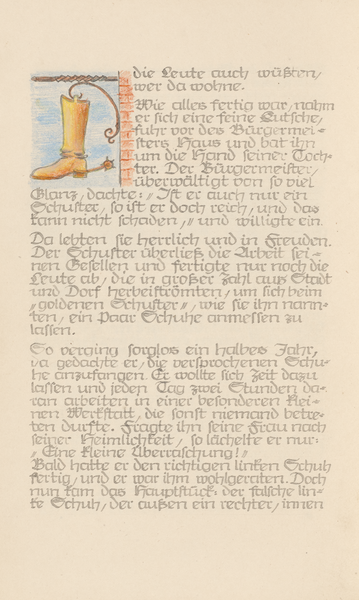 die Leute auch wüßten,
wer da wohne.
Wie alles fertig war, nahm
er sich eine feine Cutsche,
fuhr vor des Bürgermei-
sters Haus und bat ihn
um die Hand seiner Toch-
ter. Der Bürgermeister,
überwältigt von so viel
Glanz, dachte: „Ist er auch nur ein
Schuster, so ist er doch reich, und das
kann nicht schaden,“ und willigte ein.
Da lebten sie herrlich und in Freuden.
Der Schuster überließ die Arbeit sei-
nen Gesellen und fertigte nur noch die
Leute ab, die in großer Zahl aus Stadt
und Dorf herbeiströmten, um sich beim
„goldenen Schuster“, wie sie ihn nann-
ten, ein Paar Schuhe anmessen zu
lassen.
So verging sorglos ein halbes Jahr,
da gedachte er, die versprochenen Schu-
he anzufangen. Er wollte sich Zeit dazu
lassen und jeden Tag zwei Stunden da-
ran arbeiten in einer besonderen klei-
nen Werkstatt, die sonst niemand betre-
ten durfte. Fragte ihn seine Frau nach
seiner Heimlichkeit, so lächelte er nur:
„Eine kleine Überraschung!“
Bald hatte er den richtigen linken Schuh
fertig, und er war ihm wohlgeraten. Doch
nun kam das Hauptstück: der falsche lin-
ke Schuh, der außen ein rechter, innen